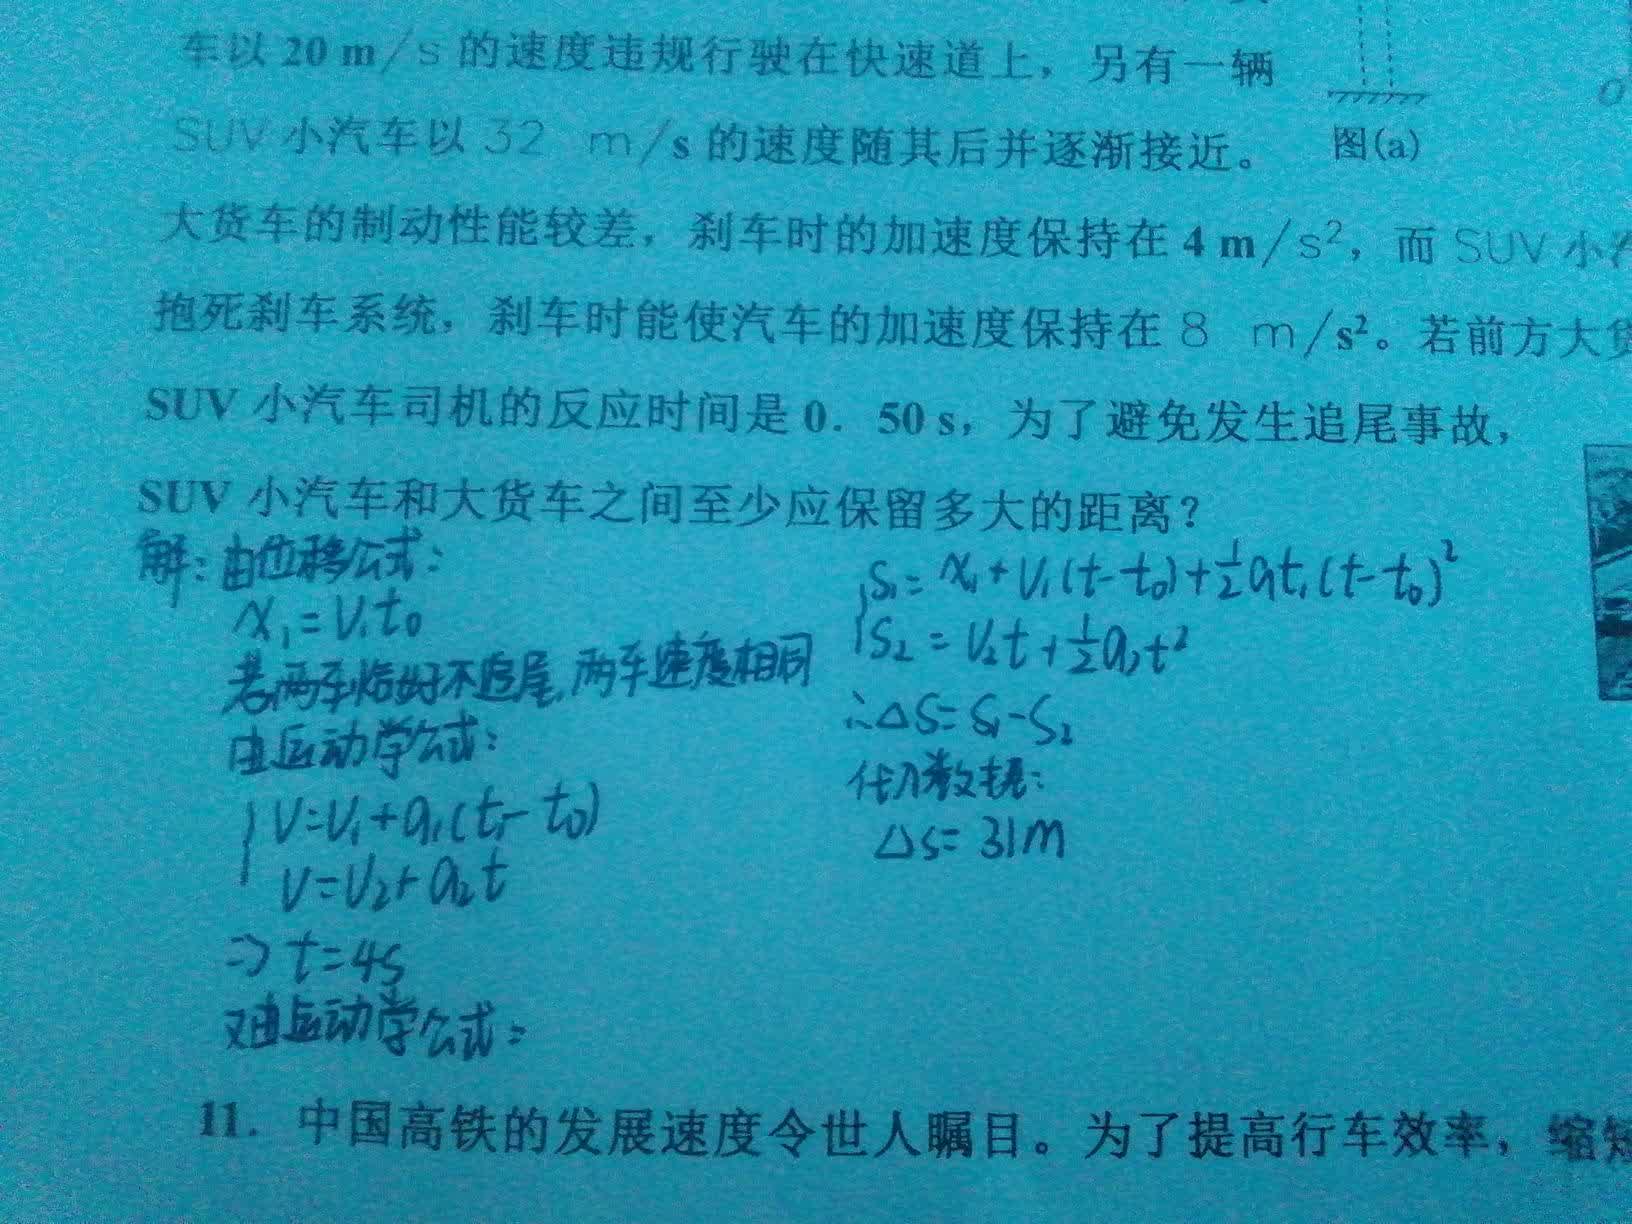 车以20 m/s的速度违规行驶在快速道上，另有一辆
SUV小汽车以32 m/s的速度随其后并逐渐接近。
图(a)
大货车的制动性能较差，刹车时的加速度保持在4 m/s²，而SUV小
抱死刹车系统，刹车时能使汽车的加速度保持在8 m/s²。若前方大货
SUV小汽车司机的反应时间是0.50 s，为了避免发生追尾事故，
SUV小汽车和大货车之间至少应保留多大的距离？
解：由位移公式：
x₁=v₁t₀
若两车恰好不追尾,两车速度相同
由运动学公式：
v=v₁+a₁(t-t₀)
v=v₂+a₂t
⇒t=4s
又由运动学公式：
S₁=x₁+v₁(t-t₀)+½a₁t₁(t-t₀)²
S₂=v₂t+½a₂t²
∴△S=S₁-S₂
代入数据：
△S=31m
11. 中国高铁的发展速度令世人瞩目。为了提高行车效率，缩短